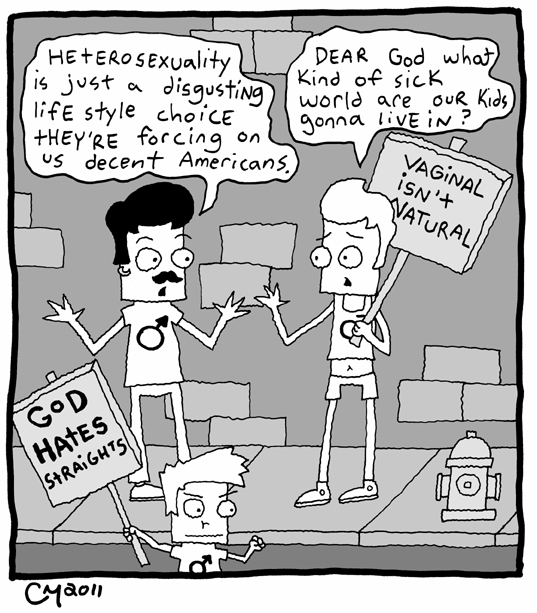 HETEROSEXUALITY
is just a disgusting
life style choice
THEY'RE forcing on
us decent Americans.
DEAR God what
kind of sick
world are our kids
gonna LIVE IN?
VAGINAL
iSN't
NATURAL
GOD
HATES
STRAiGHTS
CM2011